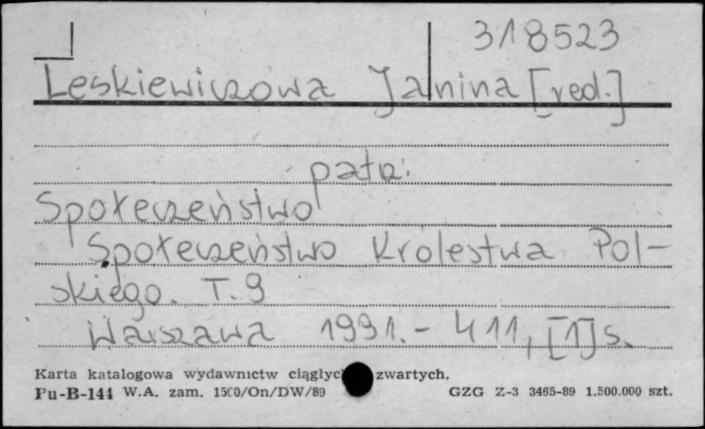 318523
Leskiewiczowa Janina [red.]
patrz:
Społeczeństwo
Społeczeństwo Królestwa Pol-
skiego. T. 9
Warszawa 1991. - 411, [1] s.
Karta katalogowa wydawnictw ciągłyc zwartych.
Pu-B-144 W.A. zam. 1500/On/DW/89 GZG Z-3 3465-89 1.500.000 szt.